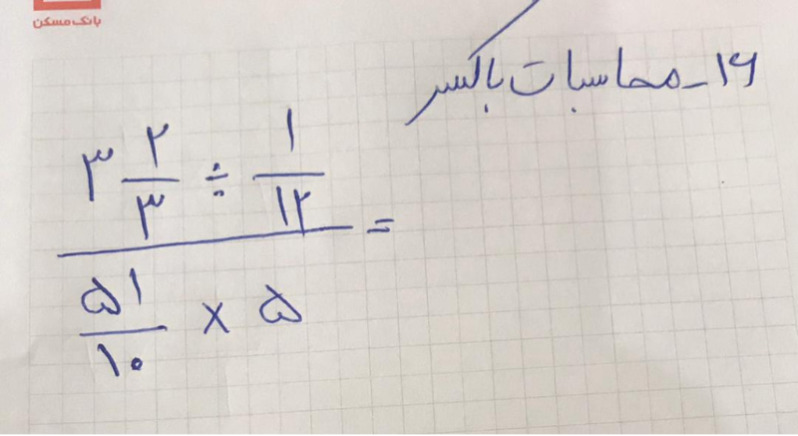 بانک مسکن
۱۶_محاسبات باکسر
۳ ۲/۳ ÷ ۱/۱۲ =
۵۱/۱۰ × ۵